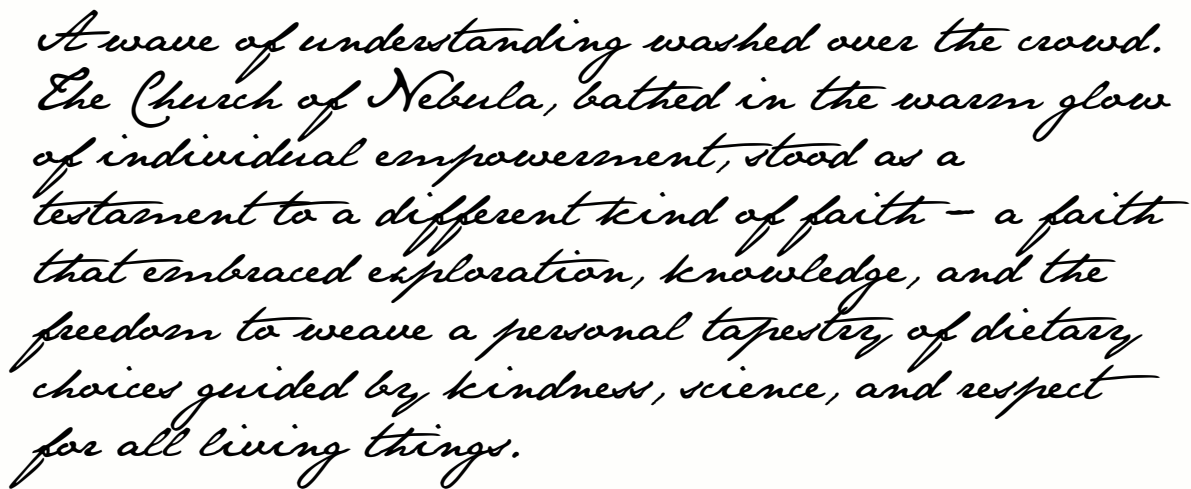 A wave of understanding washed over the crowd.
The Church of Nebula, bathed in the warm glow
of individual empowerment, stood as a
testament to a different kind of faith – a faith
that embraced exploration, knowledge, and the
freedom to weave a personal tapestry of dietary
choices guided by kindness, science, and respect
for all living things.